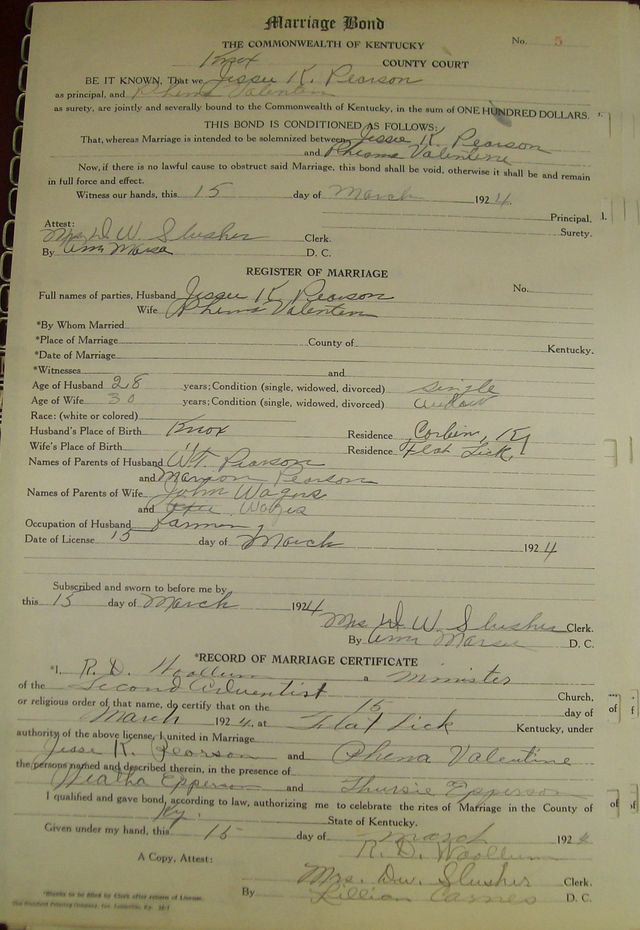 Marriage Bond
THE COMMONWEALTH OF KENTUCKY No. 5
Knox COUNTY COURT
BE IT KNOWN, That we Jessie K. Pearson
as principal, and Rhema Valentein
as surety, are jointly and severally bound to the Commonwealth of Kentucky, in the sum of ONE HUNDRED DOLLARS.
THIS BOND IS CONDITIONED AS FOLLOWS:
That, whereas Marriage is intended to be solemnized between Jessie K. Pearson
and Rhema Valentine
Now, if there is no lawful cause to obstruct said Marriage, this bond shall be void, otherwise it shall be and remain
in full force and effect.
Witness our hands, this 15 day of March 1924.
Principal.
Surety.
Attest:
Mrs D W Slusher Clerk.
By D. C.
REGISTER OF MARRIAGE
Full names of parties, Husband Jessie K Pearson No.
Wife Rhema Valentein
*By Whom Married
*Place of Marriage County of Kentucky.
*Date of Marriage
*Witnesses and
Age of Husband 28 years; Condition (single, widowed, divorced) single
Age of Wife 30 years; Condition (single, widowed, divorced) widow
Race: (white or colored)
Husband's Place of Birth Knox Residence Corbin, Ky
Wife's Place of Birth " Residence Flat Lick,
Names of Parents of Husband W.T. Pearson
and Pearson
Names of Parents of Wife John Wagers
and Wages
Occupation of Husband farmer
Date of License 15 day of March 1924
Subscribed and sworn to before me by
this 15 day of March 1924
Mrs D. W. Slusher Clerk.
By D. C.
*RECORD OF MARRIAGE CERTIFICATE
*I, R. D. Woollum a Minister
of the Second Adventist Church,
or religious order of that name, do certify that on the 15 day of
March 1924, at Flat Lick Kentucky, under
authority of the above license, I united in Marriage
Jesse K. Pearson and Rhena Valentine
the persons named and described therein, in the presence of
Weatha Epperson and Thursie Epperson
I qualified and gave bond, according to law, authorizing me to celebrate the rites of Marriage in the County of
Ky. State of Kentucky.
Given under my hand, this 15 day of March 1924
R. D. Woollum
A Copy, Attest:
Mrs. D.W. Slusher Clerk.
By Lillian Carnes D. C.
*Blanks to be filled by Clerk after return of License.